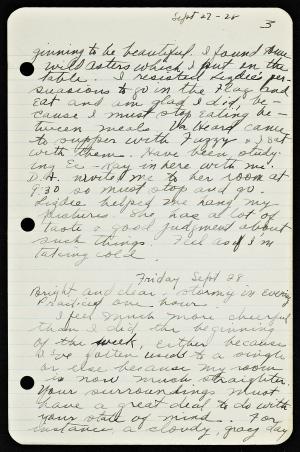 Sept 27-28
3
ginning to be beautiful. I found some
wild asters which I put on the
table. I resisted Lizdee's per-
suasions to go in the Flag and
Eat and am glad I did, be-
cause I must stop eating be-
tween meals. Heard came
to supper with Fuzzy & I sat
with them. Have been study-
ing Ec - Fay in here with me.
D.A. invited me to her room at
9:30 so must stop and go.
Lizdee helped me hang my
pictures. She has a lot of
taste & good judgment about
such things. Feel as if I'm
taking cold.
Friday Sept 28
Bright and clear - stormy in evening
Practiced one hour.
I feel much more cheerful
than I did the beginning
of the week, either because
I've gotten used to a single
or else because my room
is now much straighter.
Your surroundings must
have a great deal to do with
your state of mind. For
instance, a cloudy, gray day